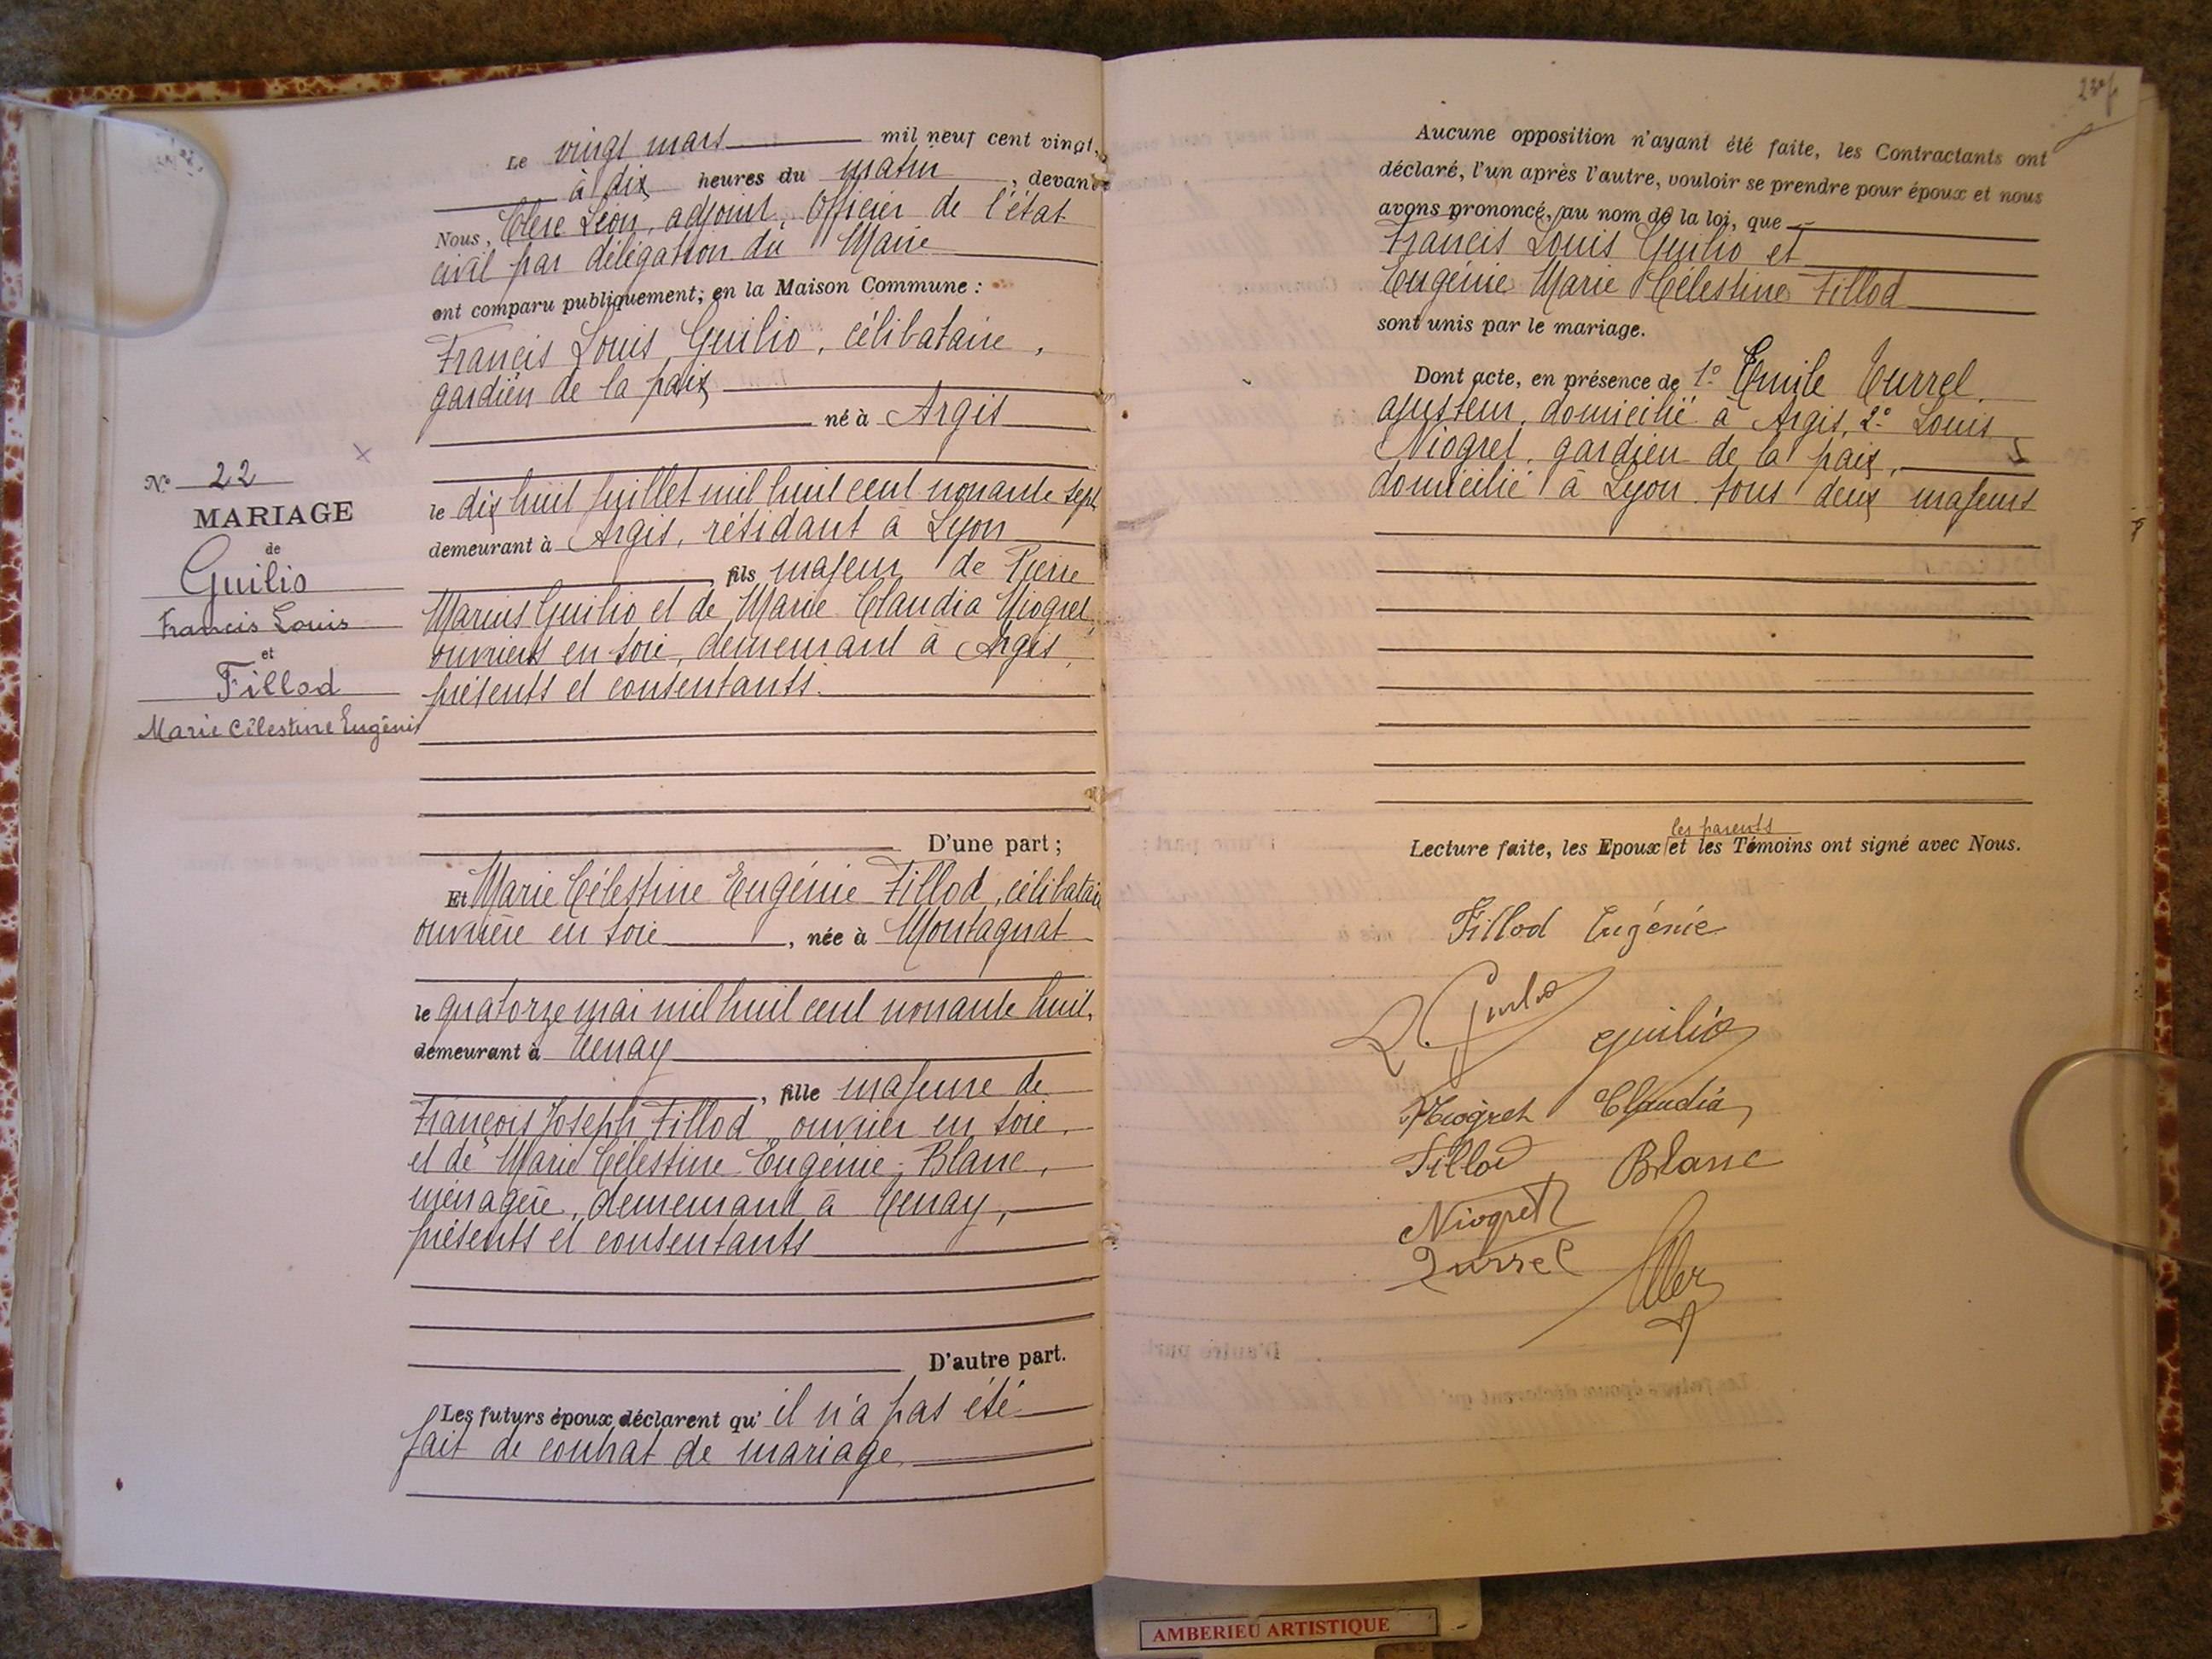 Le vingt mars mil neuf cent vingt,
à dix heures du matin, devant
Nous, Clerc Léon, adjoint Officier de l'état
civil par délégation du Maire
ont comparu publiquement, en la Maison Commune :
Francis Louis Guilio, célibataire,
gardien de la paix
né à Argis
le dix huit juillet mil huit cent nonante sept
demeurant à Argis, résidant à Lyon
fils majeur de Pierre
Marius Guilio et de Marie Claudia Niogret,
ouvriers en soie, demeurant à Argis,
présents et consentants.
D'une part ;
Et Marie Célestine Eugénie Fillod, célibataire
ouvrière en soie, née à Montagnat
le quatorze mai mil huit cent nonante huit,
demeurant à Tenay
, fille majeure de
François Joseph Fillod ouvrier en soie,
et de Marie Célestine Eugénie Blanc,
ménagère, demeurant à Tenay,
présents et consentants
D'autre part.
Les futurs époux déclarent qu' il n'a pas été
fait de contrat de mariage.
N° 22
MARIAGE
de
Guilio
Francis Louis
et
Fillod
Marie Célestine Eugénie
Aucune opposition n'ayant été faite, les Contractants ont
déclaré, l'un après l'autre, vouloir se prendre pour époux et nous
avons prononcé, au nom de la loi, que
Francis Louis Guilio et
Eugénie Marie Célestine Fillod
sont unis par le mariage.
Dont acte, en présence de 1° Emile Turrel,
ajusteur, domicilié à Argis, 2° Louis
Niogret, gardien de la paix,
domicilié à Lyon tous deux majeurs
les parents
Lecture faite, les Epoux et les Témoins ont signé avec Nous.
Fillod Eugénie
L. Guilio
Guilio
Niogret Claudia
Fillod Blanc
Niogret
Turrel
AMBERIEU ARTISTIQUE